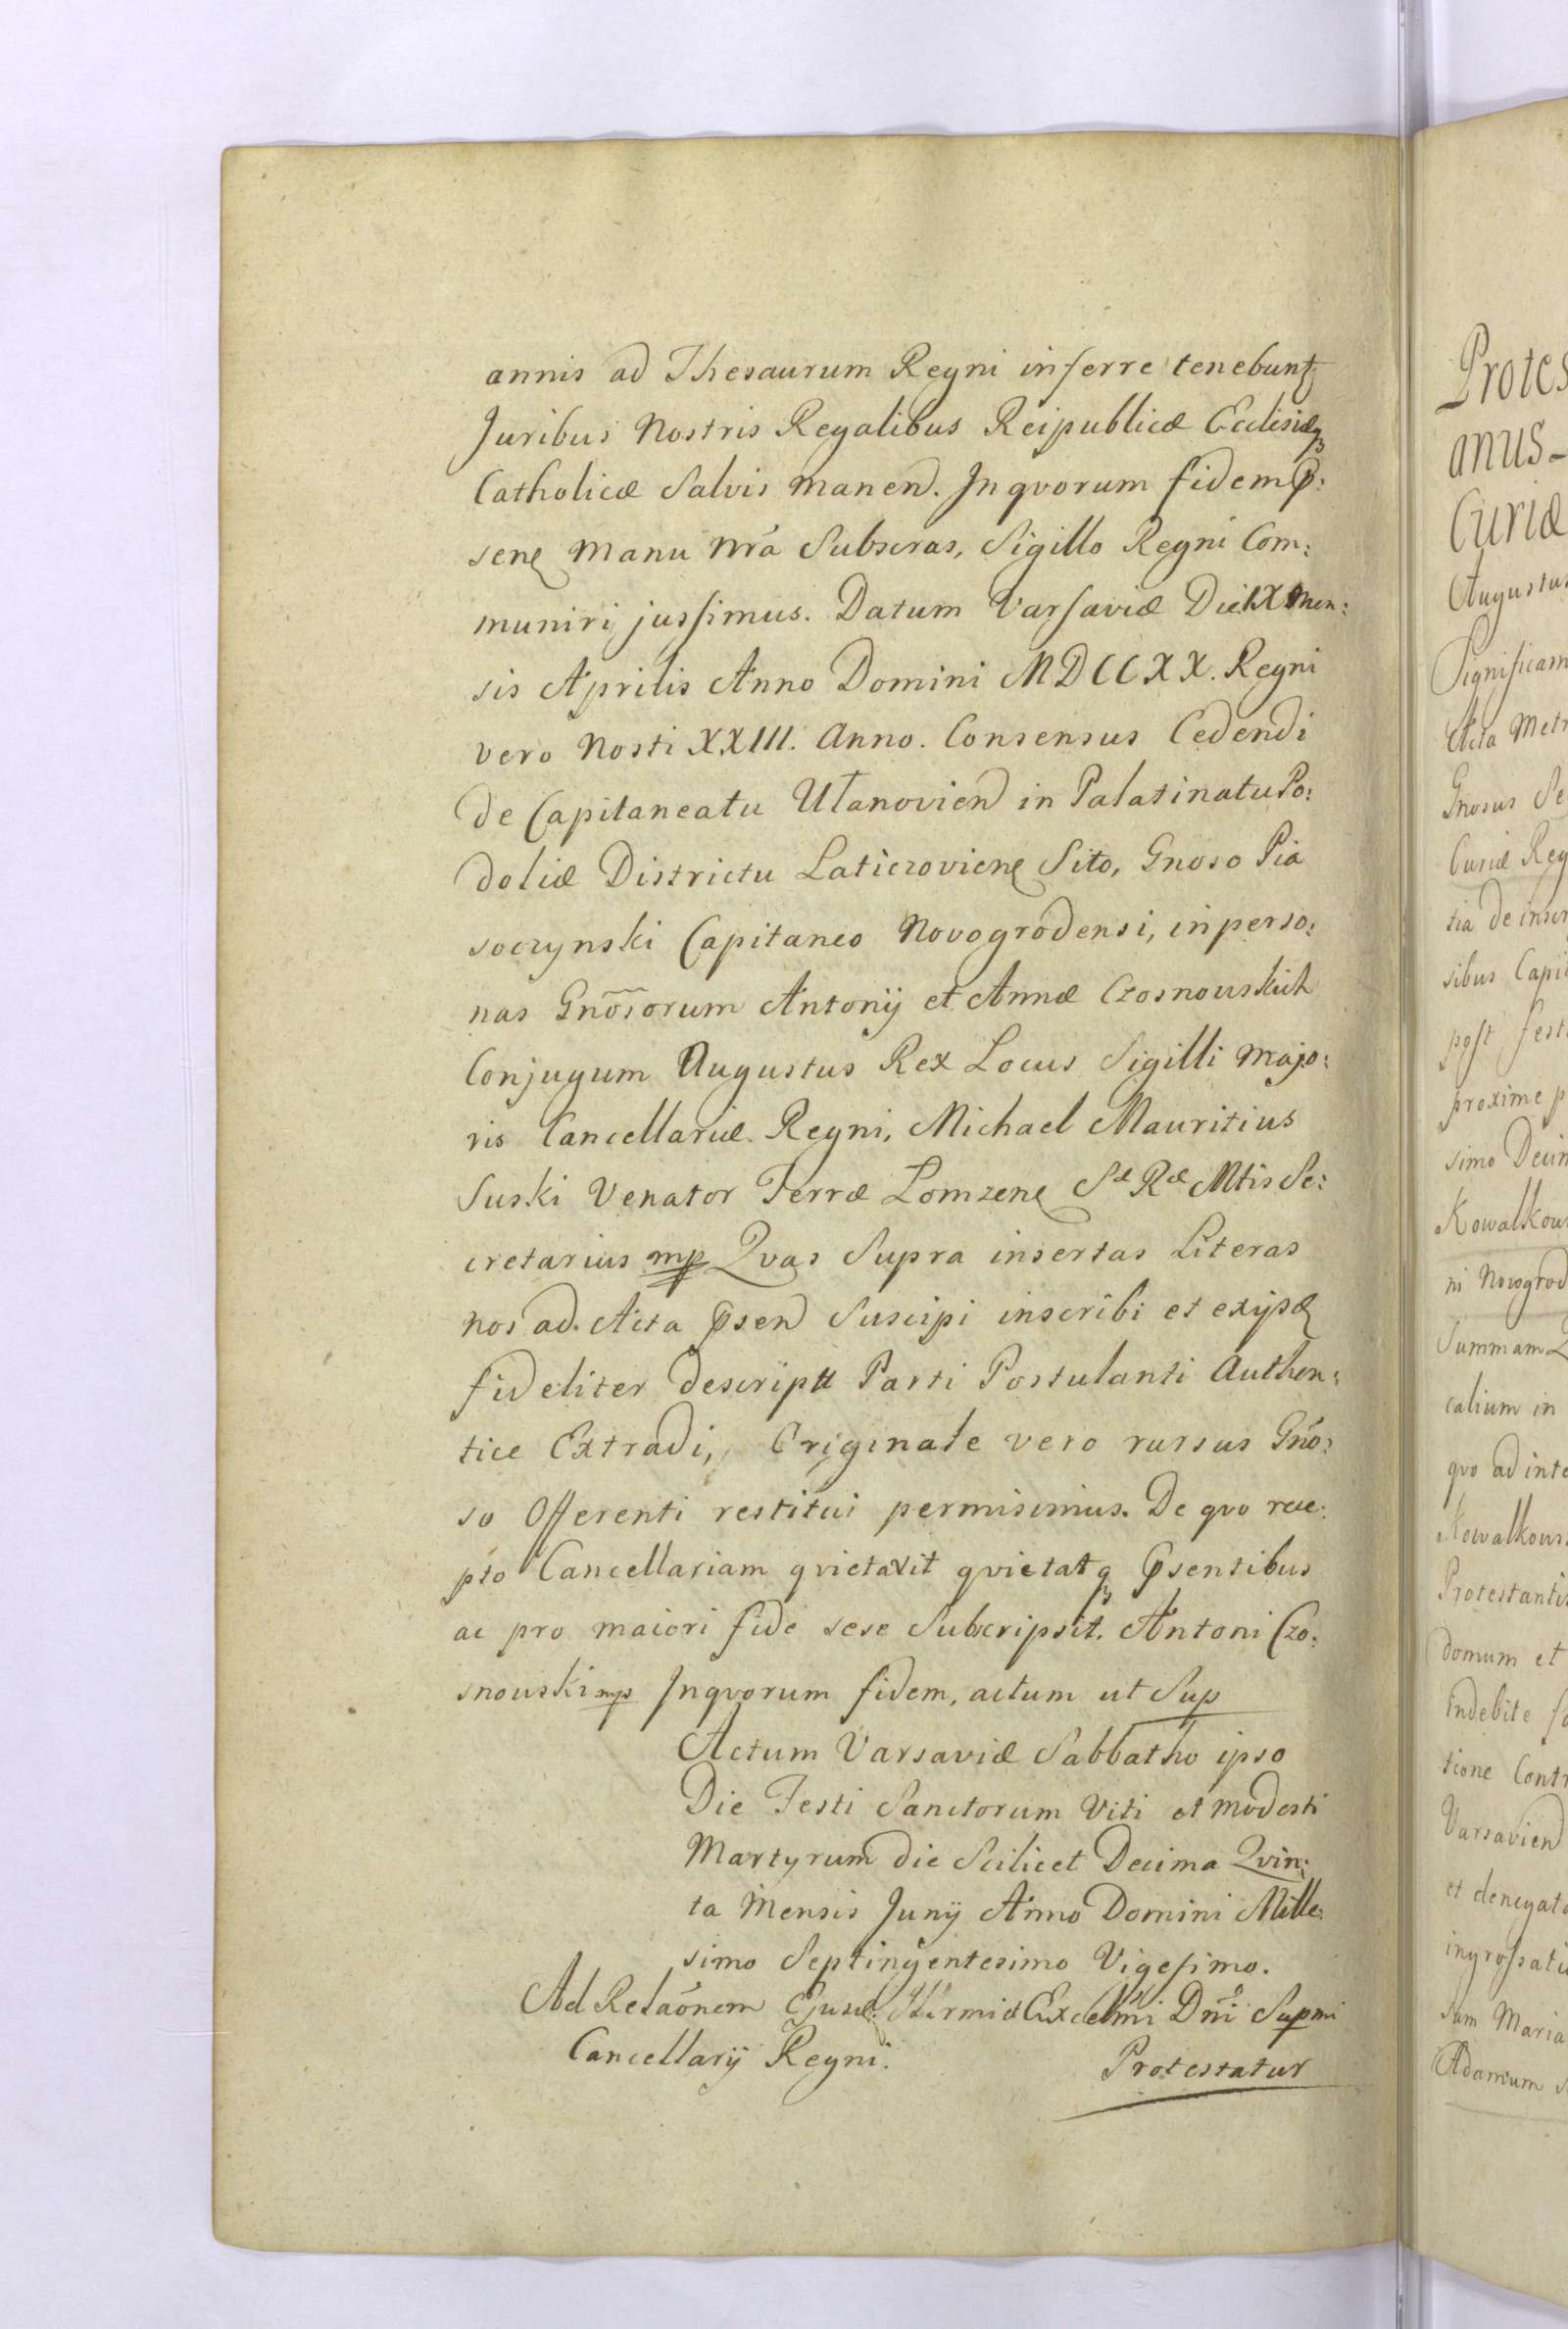 annis ad Thesaurum Regni inferre tenebunt
Juribus Nostris Regalibus Reipublicæ Eccliesiæq3
Catholicæ Salvis manen. In qvorum fidem p:
sene manu nrã Subscras, Sigillo Regni Com:
muniri jussimus. Datum Varsaviæ Die IX Men:
sis Aprilis Anno Domini MDCCXX. Regni
vero Nosti XXIII. Anno. Consensus Cedendi
de Capitaneatu Ułanovien in Palatinatu Po:
doliæ Districtu Laticzoviene Sito, Gnoso Pia
soczynski Capitaneo Novogrodensi, in perso:
nas Gnõsorum Antonij et Annæ Czosnouskich
Conjugum Augustus Rex Locus Sigilli Majo:
ris Cancellariæ Regni, Michael Mauritius
Suski Venator Terræ Łomzene Sæ Ræ Mtis Se:
cretarius mp Qvas Supra insertas Literas
nos ad Acta psen Suscipi inscribi et exijsd
fideliter descript Parti Postulanti Authen:
tice Extradi, Originale vero rursus Gno:
so Offerenti restitui permisimus. De qvo rece:
pto Cancellariam qvietavit qvietatq3 psentibus
ac pro maiori fide sese Subscripsit. Antoni Czo:
snouski mp In qvorum fidem, actum ut Sup
Actum Varsaviæ Sabbatho ipso
Die Festi Sanctorum Viti et Modesti
Martyrum die Scilicet Decima Qvin:
ta Mensis Junij Anno Domini Mille:
simo Septingentesimo Vigesimo.
Ad Relaõnem Ejusd: Illrmi et Excelmi Dni Supmi
Cancellarij Regni.
Protestatur
Protes
anus
Curiæ
Augustus
Significam
Acta Metr
Gnosus Se
Curiæ Reg
tia de inser
sibus Capit
post fest
proxime p
simo Decim
Kowalkow
ni Novogrod
Summam
calium in
qvo ad inte
Kowalkows
Protestantis
domum et
indebite
tione Contr
Varsavien
et denegat
ingrossati
sam Maria
Adamum